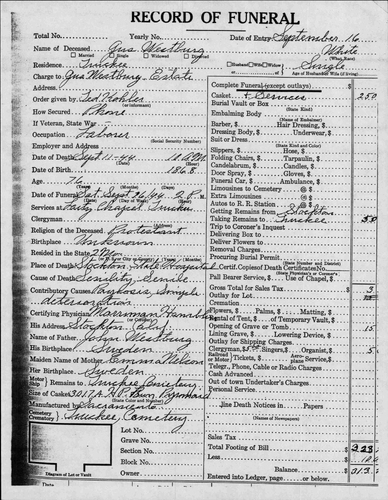 RECORD OF FUNERAL
Total No. Yearly No. Date of Entry September 16
Name of Deceased Gus Westburg White
Married Single Widowed Divorced (What Race)
Residence Truckee Husband Wife Widow Single
Charge to Gus Westburg Estate Age of Husband or Wife (if living)
Address
Order given by Ted Kohler
How Secured Phone
If Veteran, State War
Occupation Laborer
(Social Security Number)
Employer and Address
Date of Death Sept 11-44 A.M.
Date of Birth 1868
Age 76
(Years) (Months) (Days)
Date of Funeral Sat. Sept 16/44 2 P.M.
Services at Chapel Truckee
Clergyman
Religion of the Deceased Protestant
Birthplace Unknown
Resided in the State
Place of Death Stockton State Hospital
Cause of Death Senility Senile
Contributory Causes Psychosis, Simple
deterioration
Certifying Physician
His Address Stockton Calif
Name of Father John Westburg
His Birthplace Sweden
Maiden Name of Mother Emma Nelson
Her Birthplace Sweden
Motor Ship Remains to Truckee Cemetery
Size of Casket
(State Color and Number)
Manufactured by Sacramento
Cemetery Crematory Truckee, Cemetery
Lot No.
Grave No.
Section No.
Block No.
Owner
Diagram of Lot or Vault
Date
Complete Funeral (except outlays)
Casket & Services 250
Burial Vault or Box
(State Kind)
Embalming Body
(Name of Embalmer)
Barber, Hair Dressing,
Dressing Body, Underwear,
Suit or Dress
(State Kind and Color)
Slippers, Hose,
Folding Chairs, Tarpaulin,
Candelabrum, Candles,
Door Spray, Gloves,
Funeral Car, Ambulance
Limousines to Cemetery
Extra Limousines
Autos to R. R. Station
Getting Remains from Stockton
Taking Remains to Truckee 50
Trip to Coroner's Inquest
Delivering Box to
Deliver Flowers to
Removal Charges
Procuring Burial Permit
(State Number and District)
Certif. Copies of Death Certificates No.
(State Physician's or Coroner's)
Pall Bearer Service, Use of Chapel,
Gross Total for Sales Tax
Outlay for Lot
Cremation
Flowers, Palms, Matting,
Rental of Tent, of Temporary Vault,
Opening of Grave or Tomb 15
Lining Grave, Lowering Device,
Outlay for Shipping Charges
Clergyman, Singers, Organist, 5
Railroad or Motor Tickets, Aeroplane Service
Telegr., Phone, Cable or Radio Charges
Cash Advanced
Out of town Undertaker's Charges
Personal Service
Line Death Notices in Papers
(Names of Newspapers)
Sales Tax
Total Footing of Bill
Less
Balance
Entered into Ledger, page or below.